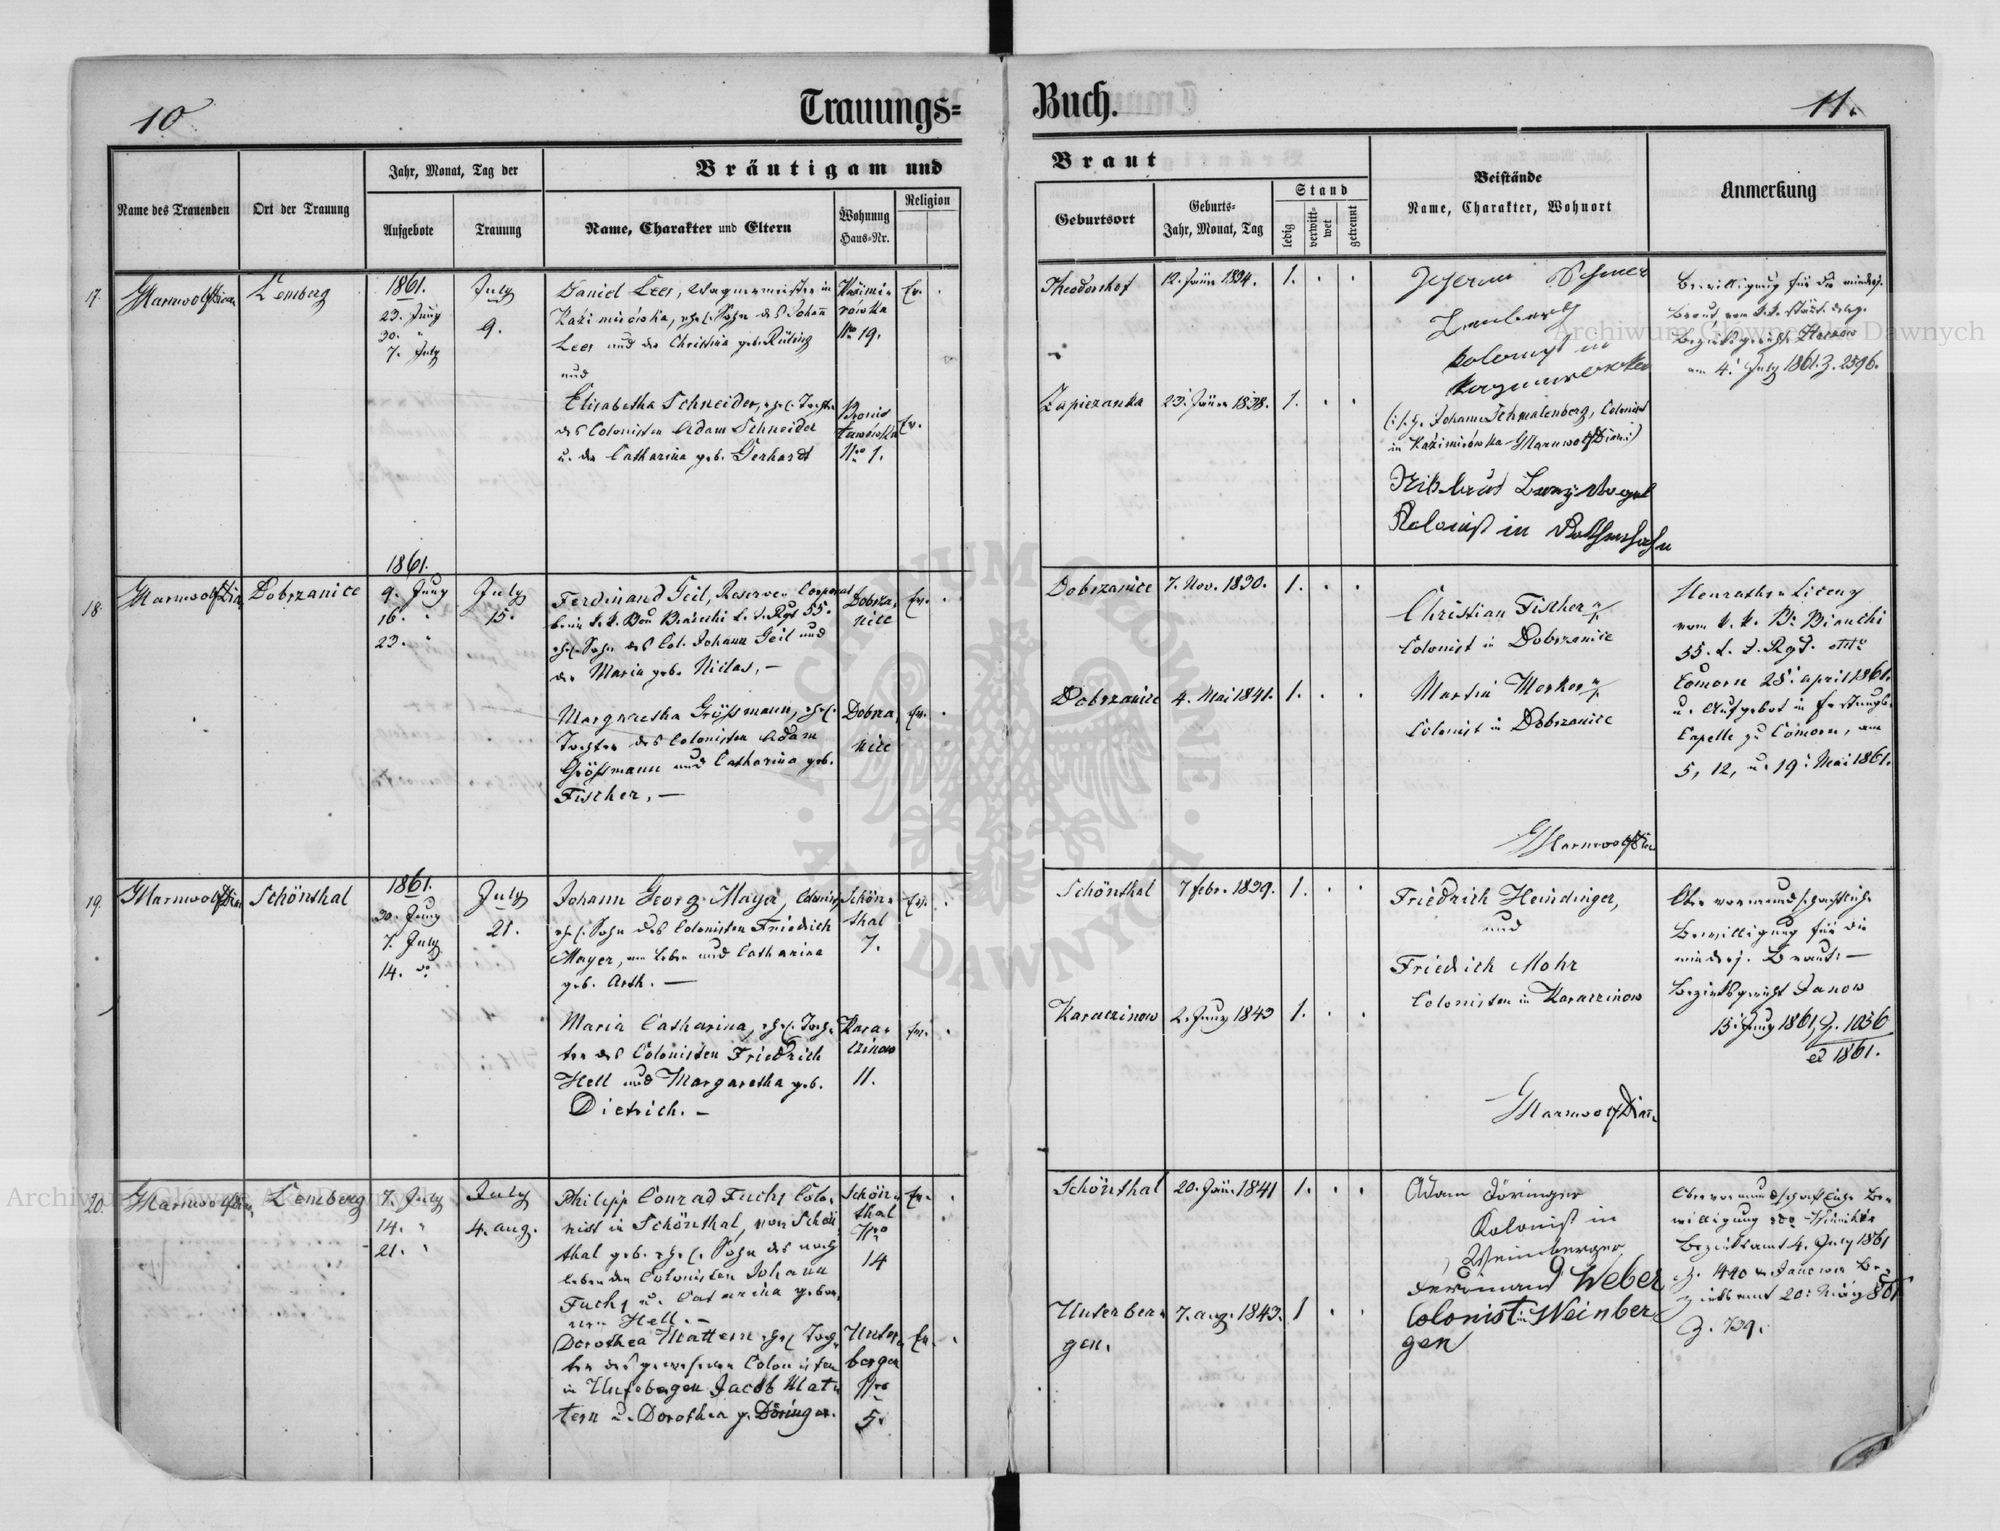 10
Trauungs=
Buch.
11.
Name des Trauenden
Ort der Trauung
Jahr, Monat, Tag der
Aufgebote
Trauung
Bräutigam und
Name, Charakter und Eltern
Wohnung
Haus=Nr.
Religion
Braut
Geburtsort
Geburts=
Jahr, Monat, Tag
Stand
ledig
verwitt=
wet
getrennt
Beistände
Name, Charakter, Wohnort
Anmerkung
17.
Lemberg
1861.
23. Juny
30. "
7. July
July
9.
Daniel Leer, Wagnermeister in
Kazimirówka, ehel. Sohn des Johann
Leer und der Christina geb. Rüling
und
Elisabetha Schneider, ehel. Tochter
des Colonisten Adam Schneider
u. der Catharina geb. Gerhardt
Kazimi-
rówka
No 19.
No 1.
Ev.
Ev.
Theodorshof
12. Jänn 1834.
1.
Zapiezanka
23. Jänn 1838.
1.
Kolonist in
(: s. z. Johann Schmalenberg, Colonist
in Kazimirówka
Kolonist in
Bewilligung für die minderj.
Braut vom k.k. städt. deleg.
am 4. July 1861. Z. 2596.
18.
Dobrzanice
1861.
9. Juny
16. "
23. "
July
15.
Ferdinand Geil, Reserve Corporal
beim k.k. Bon Bianchi L. I. Rgt 55.
ehel. Sohn des Col. Johann Geil und
der Maria geb. Niclas, —
Margaretha Größmann, ehel.
Tochter des Colonisten Adam
Größmann und Catharina geb.
Fischer, —
Dobrza,
nice
Dobrza,
nice
Ev.
Ev.
Dobrzanice
7. Nov. 1830.
1.
Dobrzanice
4. Mai 1841.
1.
Christian Fischer
Colonist in Dobrzanice
Martin Merker
Colonist in Dobrzanice
Heiraths Licenz
vom k. k. Bn Bianchi
55. L. I. Rgt. dtto
Comorn 28. april 1861.
u. Aufgebot in Festungs
Capelle zu Comorn, am
5, 12, u. 19. Mai 1861.
19.
Schönthal
1861.
30. Juny
7. July
14. do
July
21.
Johann Georg Mayer, Colonist,
ehel. Sohn des Colonisten Friedrich
Mayer, am Leben und Catharina
geb. Arth. —
Maria Catharina, ehel. Toch-
ter des Colonisten Friedrich
Hell und Margaretha geb.
Dietrich. —
Schön-
thal
7.
Kara-
czinow
11.
Ev.
Ev.
Schönthal
7 febr. 1839.
1.
Karaczinow
2. Juny 1843
1.
Friedrich Heindinger,
und
Friedrich Mohr
Colonisten in Karaczinow
Obervormundschaftliche
Bewilligung für die
minderj. Braut: —
Bezirksgericht Janow
15. Juny 1861, Z. 1056
ex 1861.
20.
Lemberg
7. July
14. "
21. "
July
4. aug.
Philipp Conrad Fuchs Colo-
nist in Schönthal, von Schön
thal geb. ehel. Sohn des noch
lebenden Colonisten Johann
Fuchs u. Catharina gebor-
nen Hell. —
Dorothea Mattern ehel. Toch-
ter des gewesenen Colonisten
in Unterbergen Jacob Mat-
tern u. Dorothea g. Döringer.
Schön-
thal
No
14
Unter-
bergen
Nro
5.
Ev.
Ev.
Schönthal
20. Jän. 1841
1.
Unterber-
gen.
7. aug. 1843.
1
Adam Döringer
Kolonist in
Weinbergen
Ferdinand Weber
Colonist in Weinber
gen
Obervormundschaftliche Be-
willigung
Bezirksamt 4. July 1861
Z. 739.
Archiwum Główne Akt Dawnych
Archiwum Główne Akt Dawnych
ARCHIWUM GŁÓWNE
AKT DAWNYCH